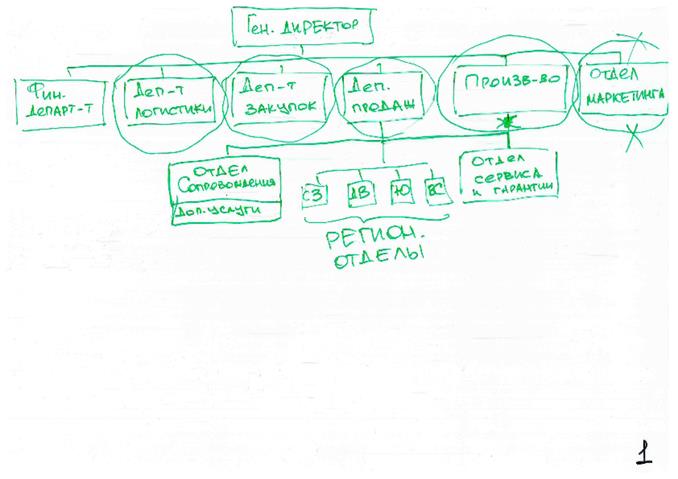 Ген. директор
Фин.
департ-т
Деп-т
логистики
Деп-т
закупок
Деп.
продаж
Произв-во
отдел
маркетинга
отдел
Сопровождения
Доп. услуги
СЗ
ДВ
Ю
ВС
Регион.
отделы
Отдел
сервиса
и гарантии
1